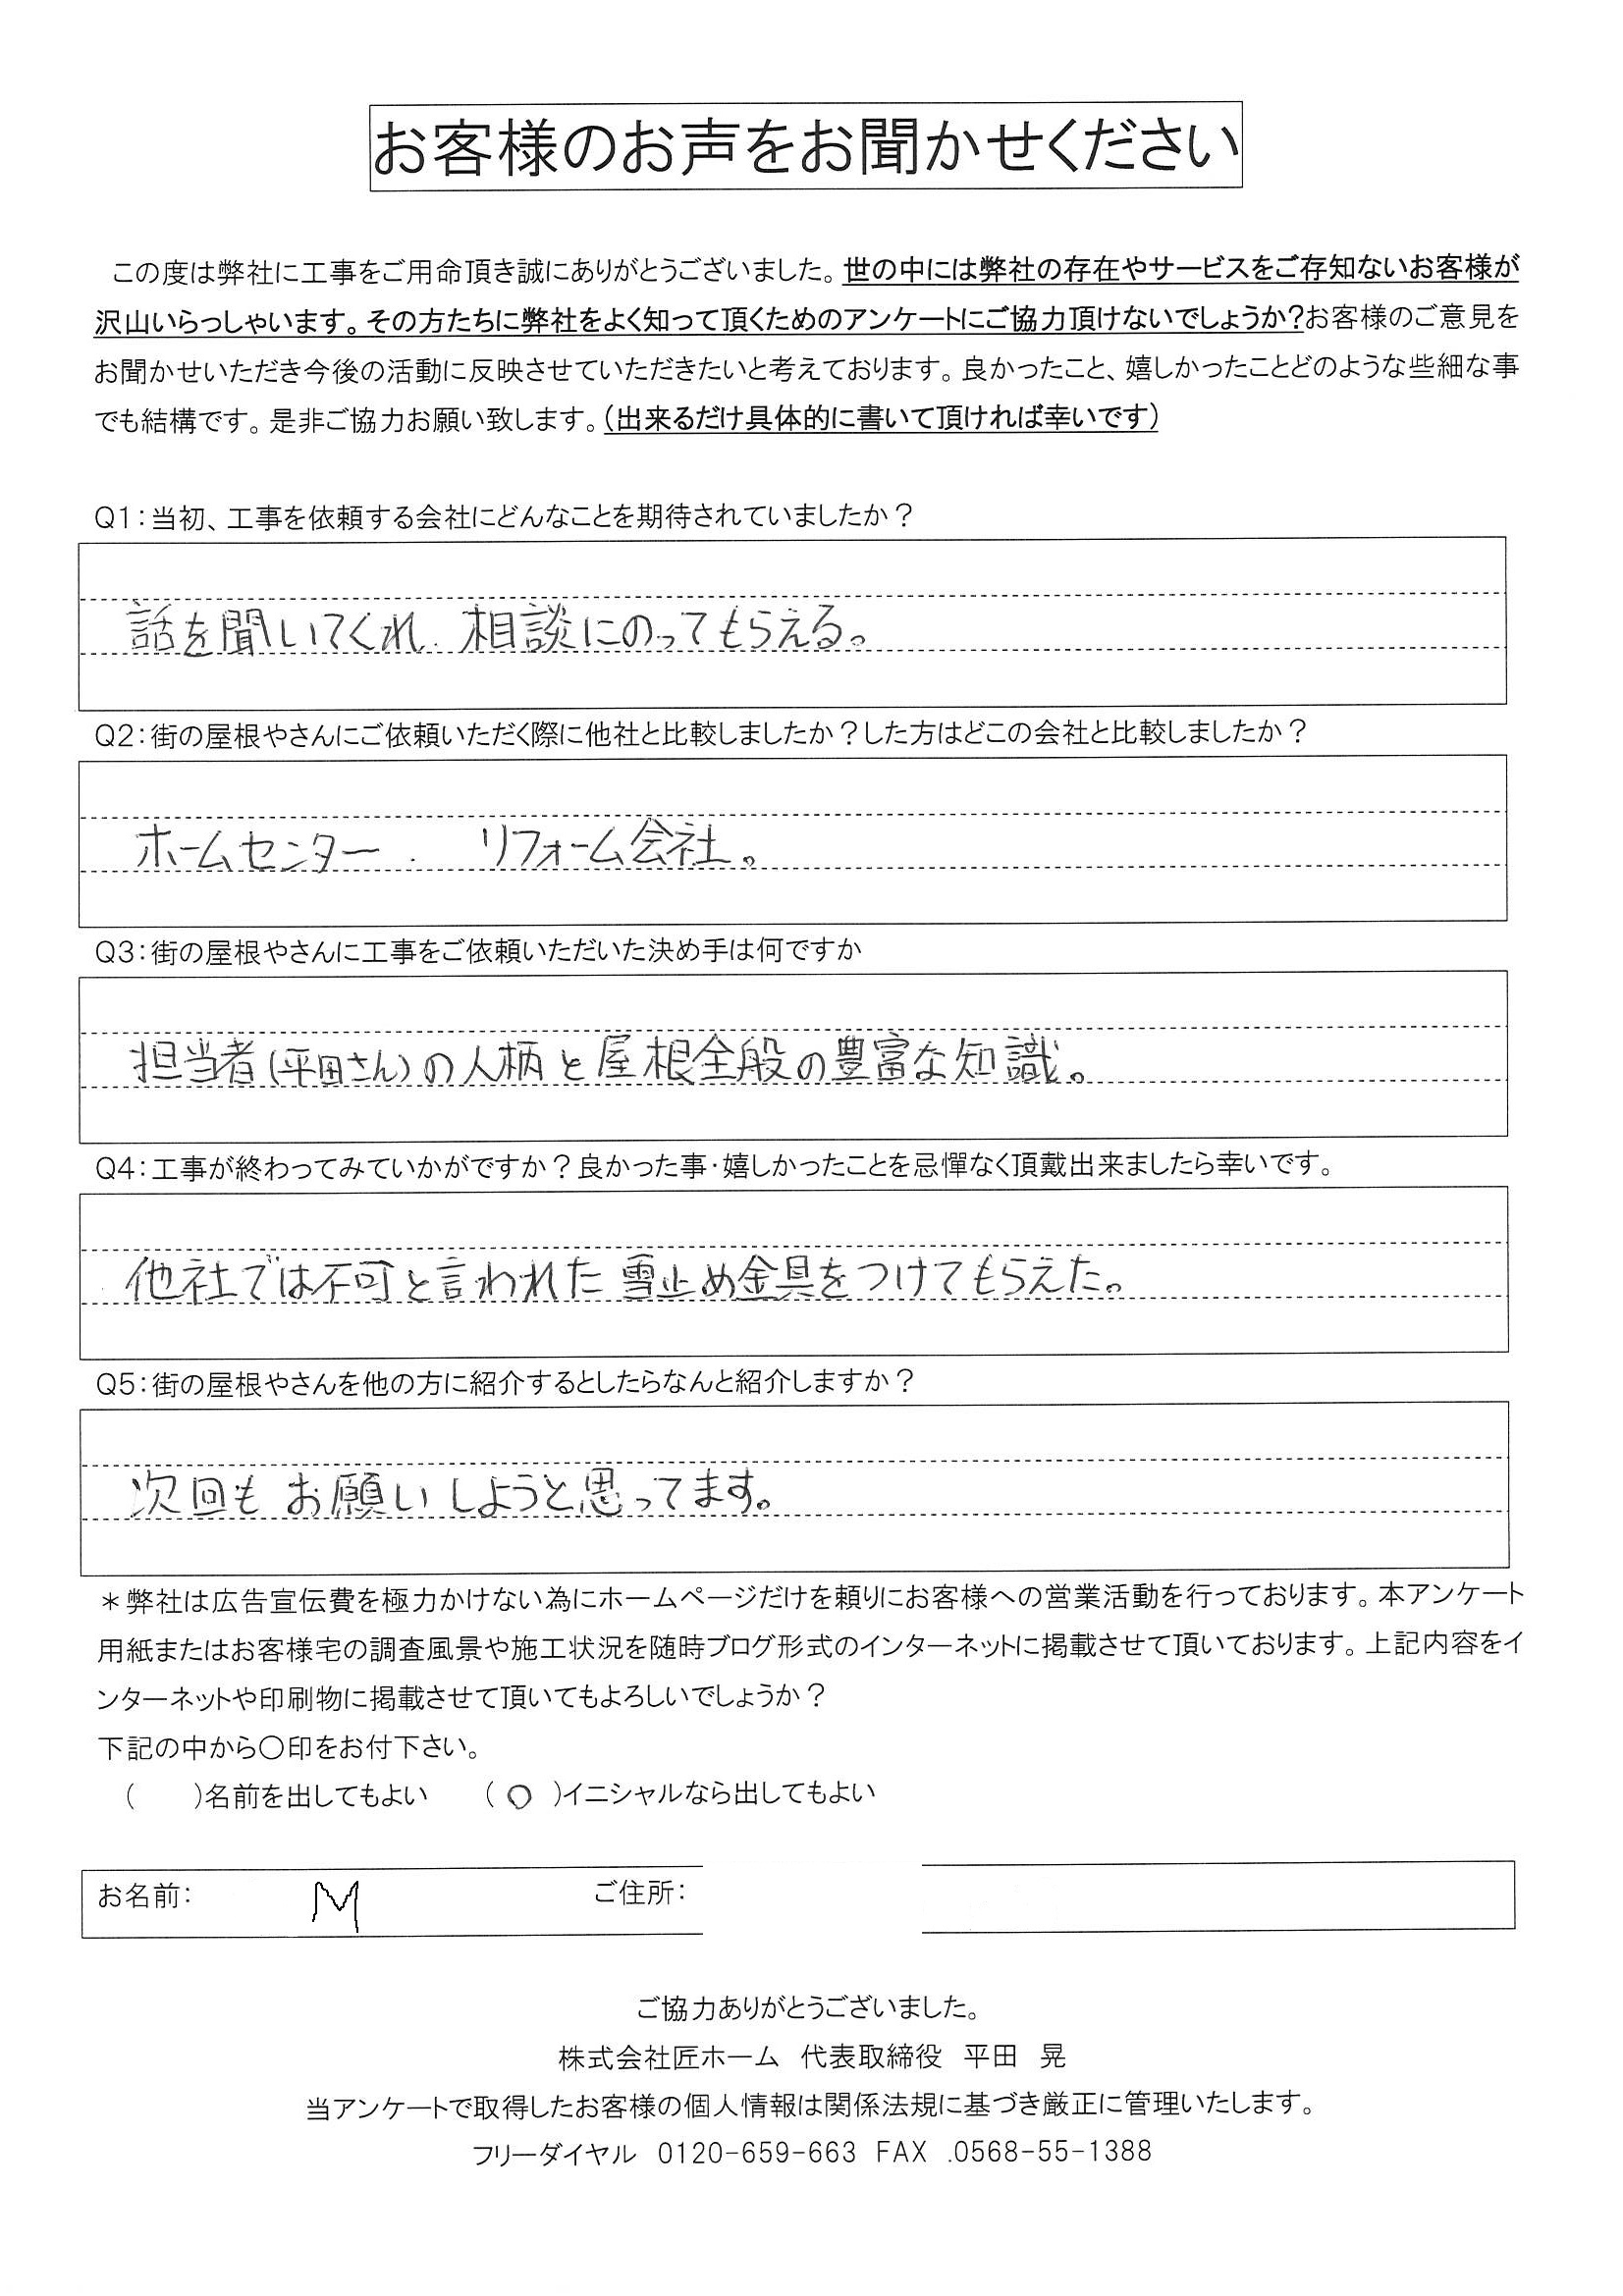 お客様のお声をお聞かせください
この度は弊社に工事をご用命頂き誠にありがとうございました。世の中には弊社の存在やサービスをご存知ないお客様が
沢山いらっしゃいます。その方たちに弊社をよく知って頂くためのアンケートにご協力頂けないでしょうか?お客様のご意見を
お聞かせいただき今後の活動に反映させていただきたいと考えております。良かったこと、嬉しかったことどのような些細な事
でも結構です。是非ご協力お願い致します。(出来るだけ具体的に書いて頂ければ幸いです)
Q1:当初、工事を依頼する会社にどんなことを期待されていましたか?
話を聞いてくれ、相談にのってもらえる。
Q2:街の屋根やさんにご依頼いただく際に他社と比較しましたか?した方はどこの会社と比較しましたか?
ホームセンター、 リフォーム会社。
Q3:街の屋根やさんに工事をご依頼いただいた決め手は何ですか
担当者(平田さん)の人柄と屋根全般の豊富な知識。
Q4:工事が終わってみていかがですか?良かった事・嬉しかったことを忌憚なく頂戴出来ましたら幸いです。
他社では不可と言われた雪止め金具をつけてもらえた。
Q5:街の屋根やさんを他の方に紹介するとしたらなんと紹介しますか?
次回もお願いしようと思ってます。
*弊社は広告宣伝費を極力かけない為にホームページだけを頼りにお客様への営業活動を行っております。本アンケート
用紙またはお客様宅の調査風景や施工状況を随時ブログ形式のインターネットに掲載させて頂いております。上記内容をイ
ンターネットや印刷物に掲載させて頂いてもよろしいでしょうか?
下記の中から〇印をお付下さい。
( )名前を出してもよい (〇)イニシャルなら出してもよい
お名前: M ご住所:
ご協力ありがとうございました。
株式会社匠ホーム 代表取締役 平田 晃
当アンケートで取得したお客様の個人情報は関係法規に基づき厳正に管理いたします。
フリーダイヤル 0120-659-663 FAX .0568-55-1388